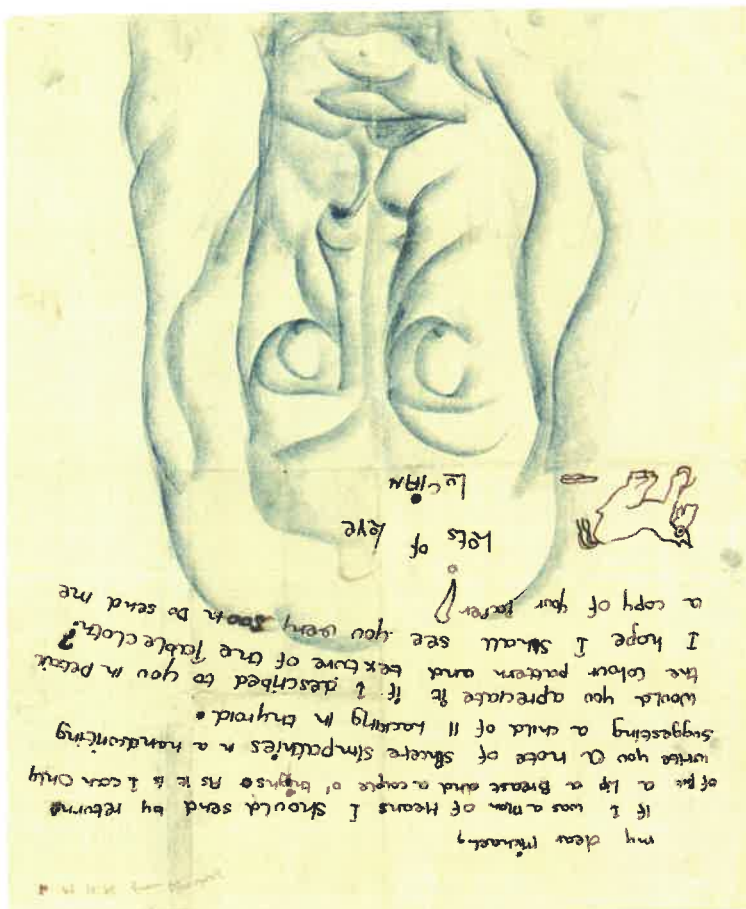 my dear Michael,
If I was a Man of Means I should send by return
of a Lip a Breast and a couple o' thighs. As it is I can only
write you a note of sincere simpathies in a handwriting
suggesting a child of 11 Lacking in thyroid.
would you apreciate it if I described to you in Detail
the colour pattern and texture of the tablecloth?
I hope I shall see you very soon Do send me
a copy of your
Lots of Love
LuCIAN